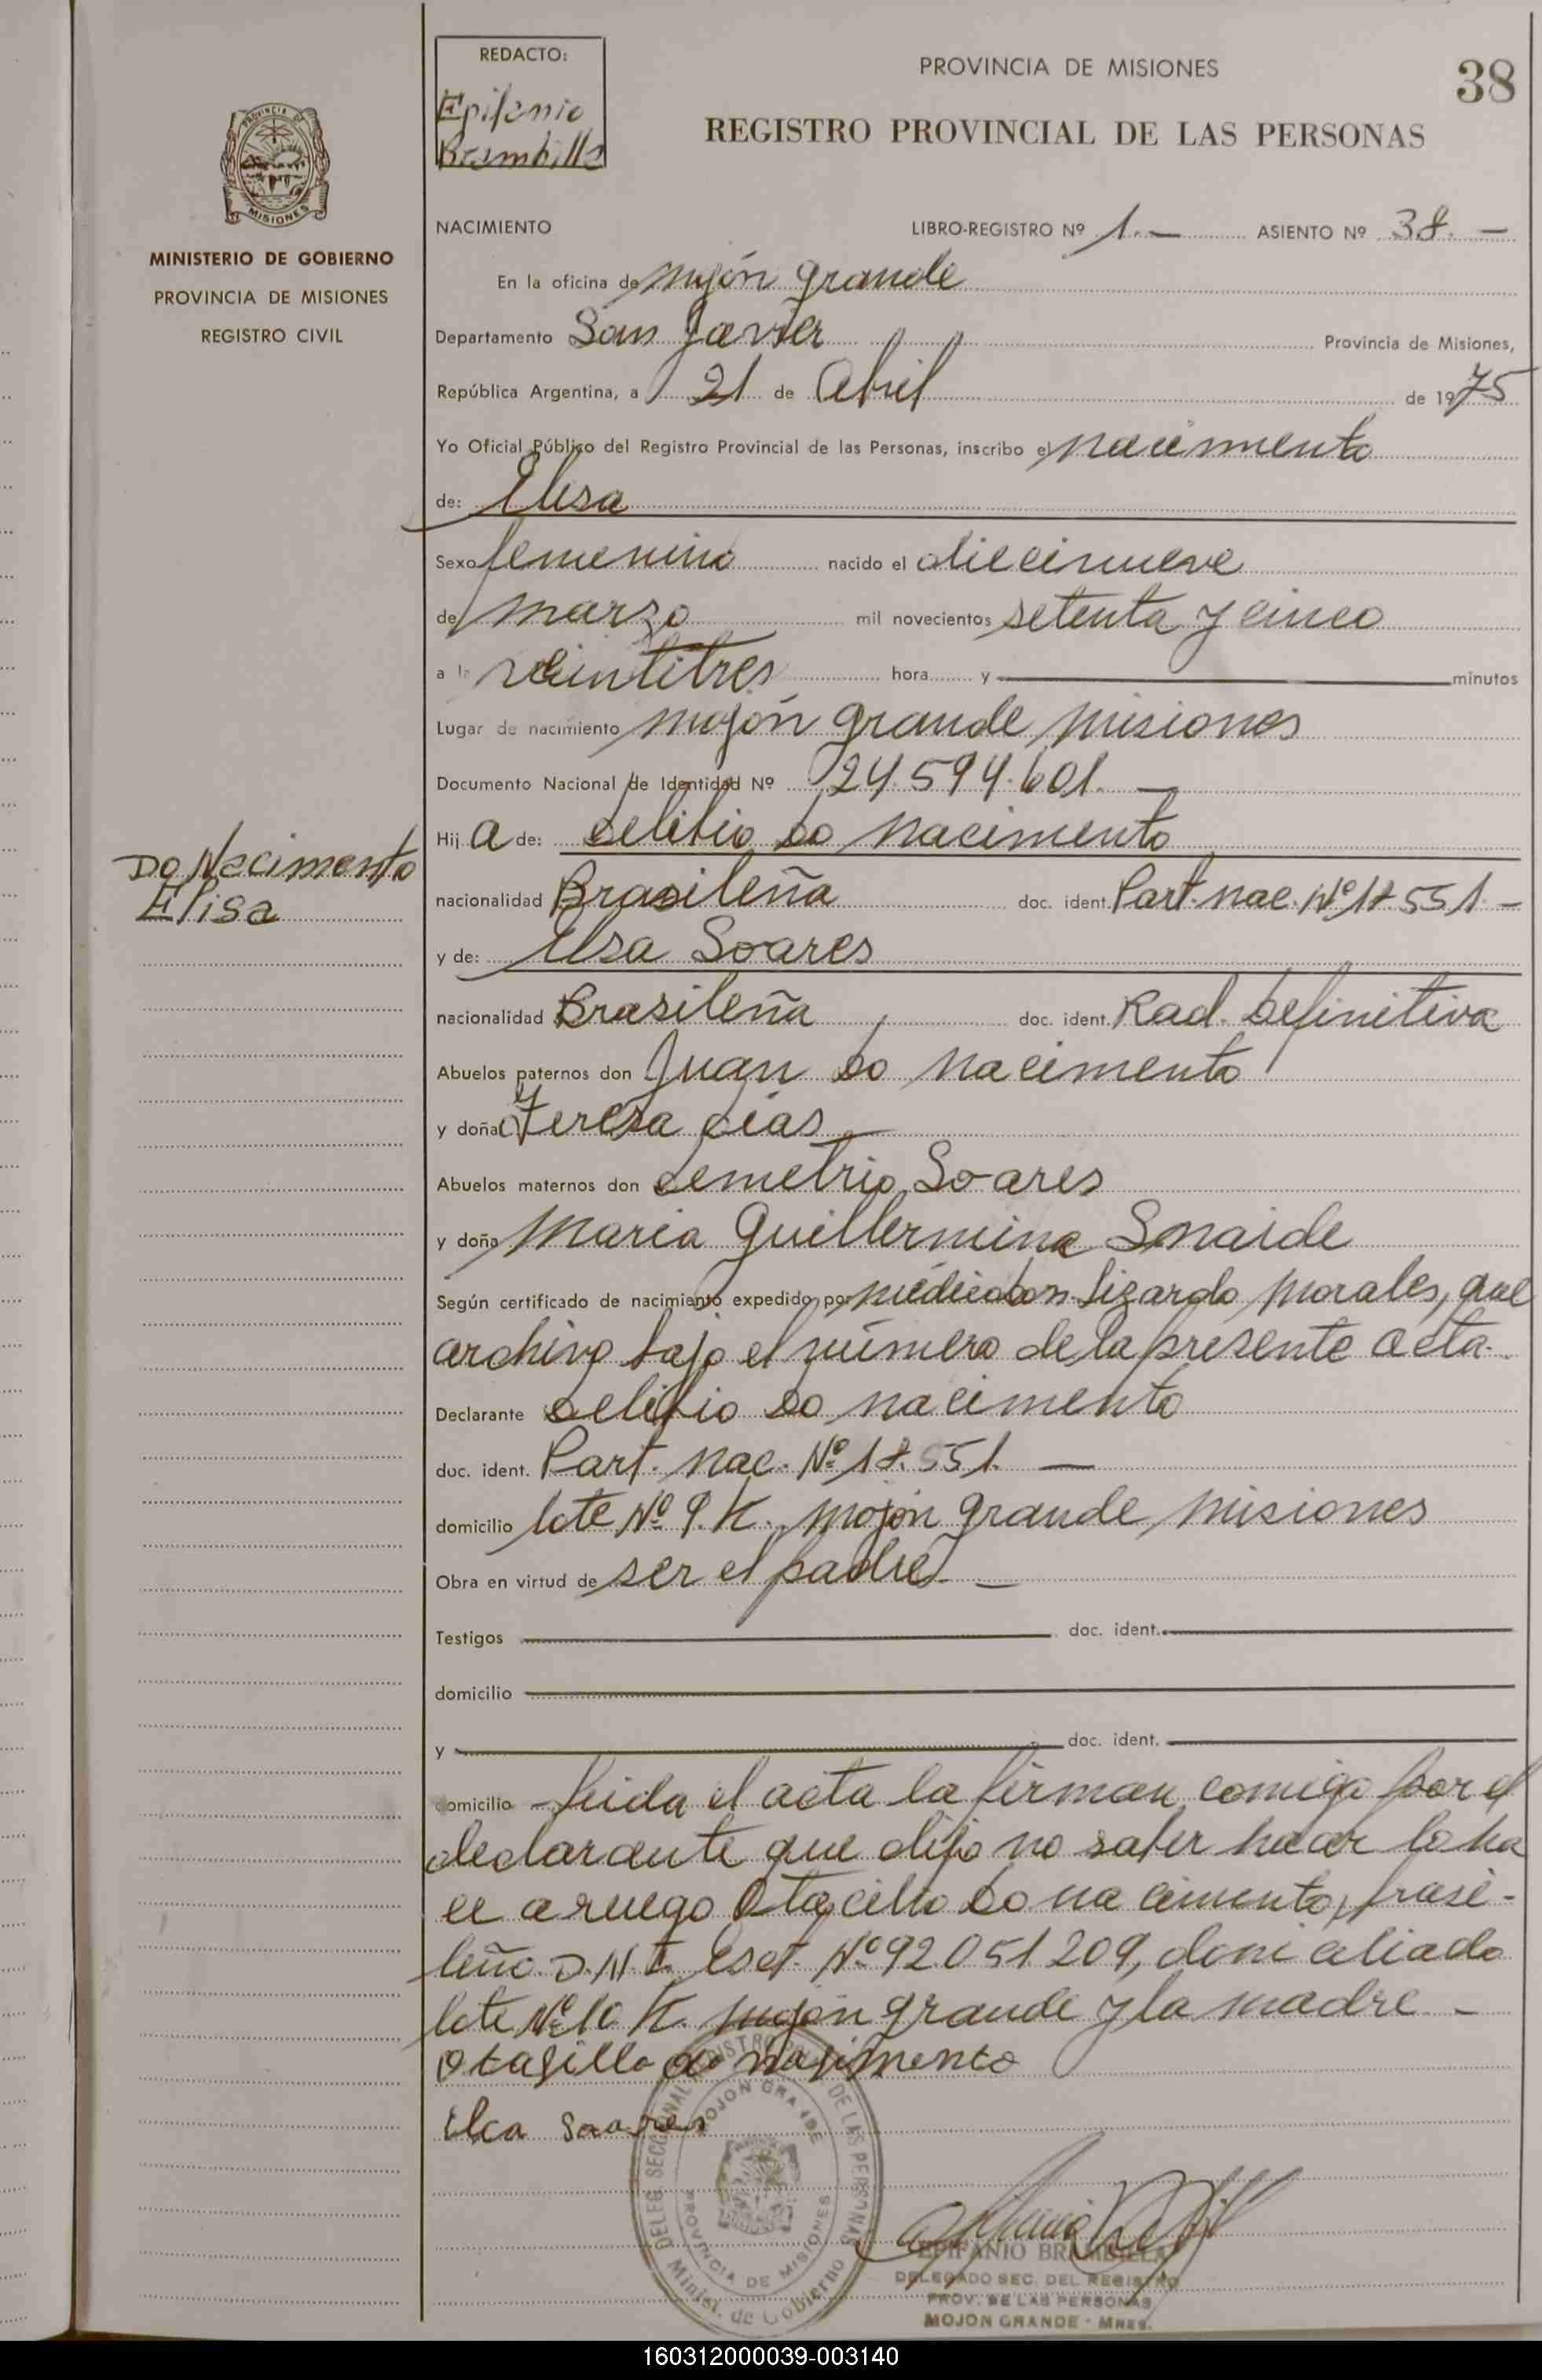 REDACTO:
Epifanio
Brambilla
PROVINCIA DE MISIONES
38
REGISTRO PROVINCIAL DE LAS PERSONAS
PROVINCIA DE
MISIONES
MINISTERIO DE GOBIERNO
PROVINCIA DE MISIONES
REGISTRO CIVIL
NACIMIENTO LIBRO-REGISTRO Nº 1.— ASIENTO Nº 38.—
En la oficina de mojón grande
Departamento San Javier Provincia de Misiones,
República Argentina, a 21 de abril de 1975
Yo Oficial Público del Registro Provincial de las Personas, inscribo el nacimento
de: Elisa
Sexo femenino nacido el diecinueve
de marzo mil novecientos setenta y cinco
a la veintitres hora y minutos
Lugar de nacimiento mojón grande misiones
Documento Nacional de Identidad Nº 24.594.601.—
Hij a de: Delibio Do nacimento
Do Nacimento
Elisa
nacionalidad Brasileña doc. ident. Part. nac. Nº 18.551.—
y de: Elsa Soares
nacionalidad Brasileña doc. ident. Rad. Definitiva
Abuelos paternos don Juan Do nacimento
y doña Teresa Dias
Abuelos maternos don Demetrio Soares
y doña Maria Guillermina Snaide
Según certificado de nacimiento expedido por médico don Lizardo morales, que
archivo bajo el número de la presente acta.
Declarante Delibio Do nacimento
doc. ident. Part. nac. Nº 18.551.—
domicilio lote Nº 9.K. mojón grande misiones
Obra en virtud de ser el padre.—
Testigos doc. ident.
domicilio
y doc. ident.
domicilio – Leida el acta la firman comigo por el
declarante que dijo no saber hacer lo ha
ce a ruego Otacilio Do nacimento, brasi-
leño D.N.I. Esct. Nº 92.051209, domiciliado
lote Nº 10 K. mojón grande y la madre –
Otasillo do nasimento
Elca Soares
DELEG. SECCIONAL REGISTRO DE LAS PERSONAS
MOJON GRANDE
PROVINCIA DE MISIONES
Minist. de Gobierno
EPIFANIO BRAMBILLA
DELEGADO SEC. DEL REGISTRO
PROV. DE LAS PERSONAS
MOJON GRANDE - MNES.
160312000039-003140